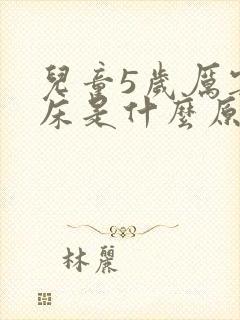 兒童5歲屬
床是什麼原
林麗